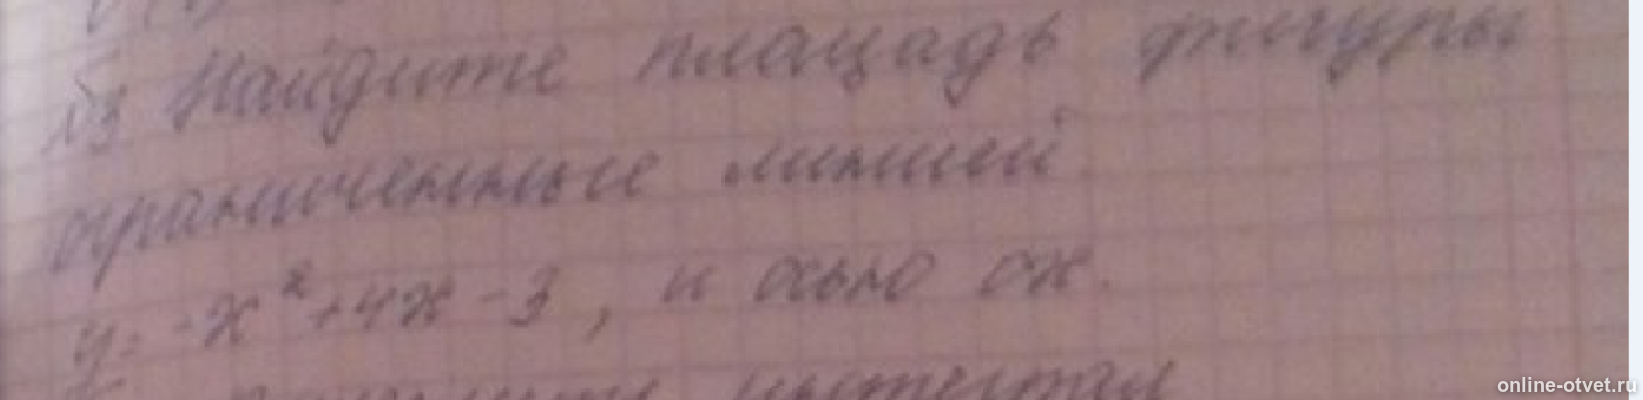 №3 Найдите площадь фигуры
ограниченные линией
y = -x² + 4x - 3, и осью ox.
online-otvet.ru